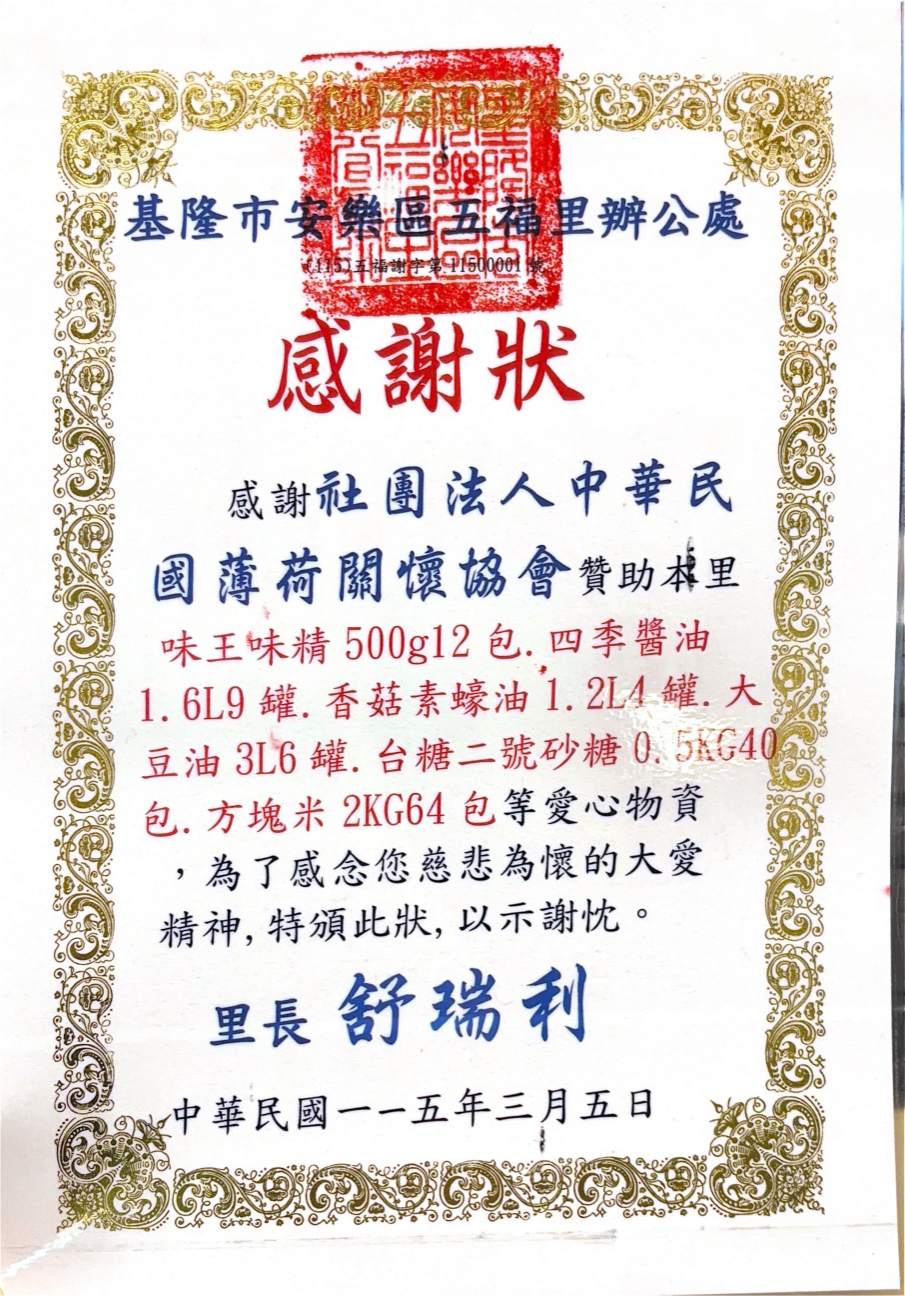 基隆市安樂區五福里辦公處
(115)五福謝字第11500001號
感謝狀
感謝社團法人中華民
國薄荷關懷協會贊助本里
味王味精500g12包.四季醬油
1.6L9罐.香菇素蠔油1.2L4罐.大
豆油3L6罐.台糖二號砂糖0.5KG40
包.方塊米2KG64包等愛心物資
，為了感念您慈悲為懷的大愛
精神,特頒此狀,以示謝忱。
里長 舒瑞利
中華民國一一五年三月五日